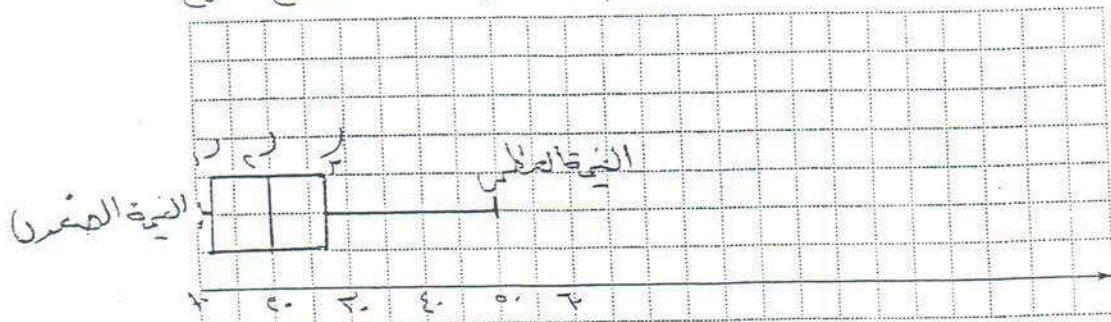 ر١ ر٢ ر٣
القيمة العظمى
القيمة الصغرى
١٠ ٢٠ ٣٠ ٤٠ ٥٠ ٦٠